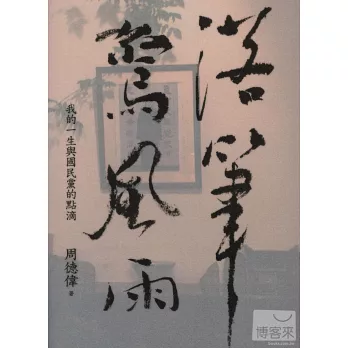 落筆
驚風雨
我的一生與國民黨的點滴
周德偉 著
博客來